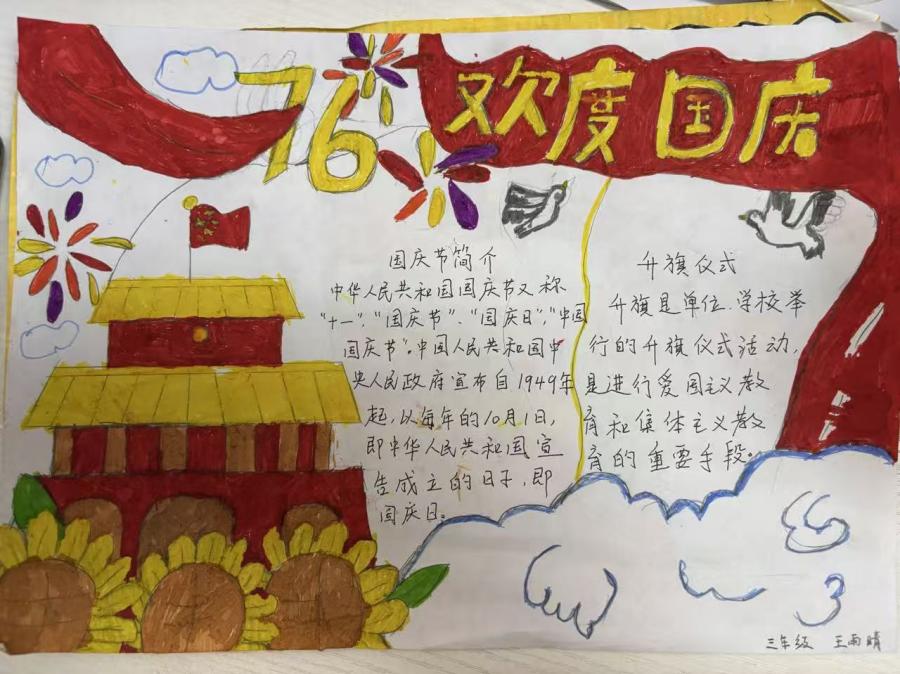 76
欢度国庆
国庆节简介
中华人民共和国国庆节又称
“十一”、“国庆节”、“国庆日”、“中国
国庆节”。中国人民共和国中
央人民政府宣布自1949年
起,以每年的10月1日,
即中华人民共和国宣
告成立的日子,即
国庆日。
升旗仪式
升旗是单位、学校举
行的升旗仪式活动,
是进行爱国主义教
育和集体主义教
育的重要手段。
三年级 王雨晴